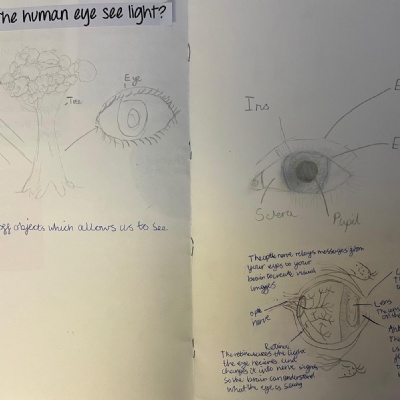 the human eye see light?
Eye
Tree
off objects which allows us to see
Iris
E
E
Sclera
Pupil
The optic nerve relays messages from
your eyes to your
brain to create visual
images
optic
nerve
Lens
Retina
The retina senses the light
the eye receives and
changes it into nerve signals
So the brain can understand
what the eye is seeing